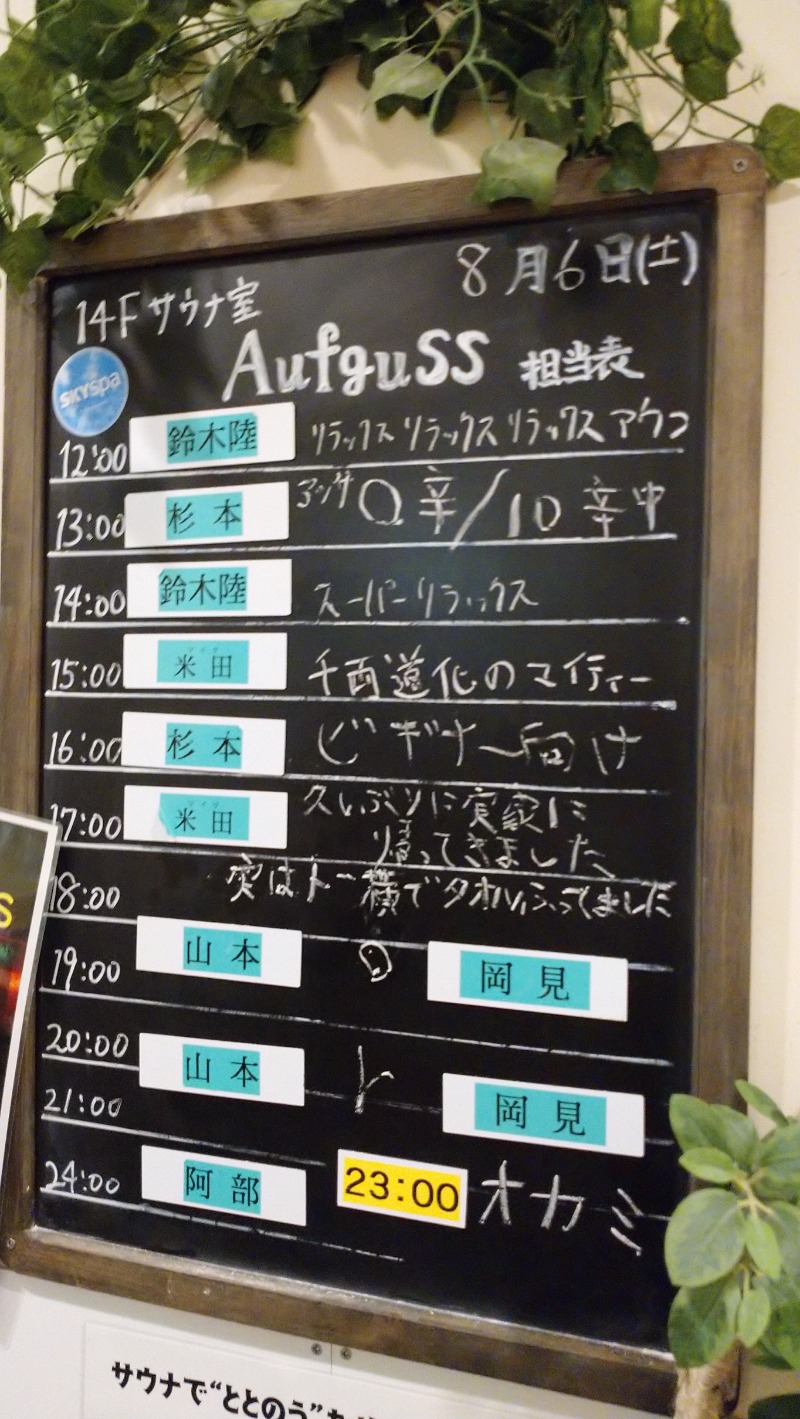 8月6日(土)
14Fサウナ室
Aufguss 担当表
SKYSPA
12:00 鈴木陸 リラックスリラックスリラックスアウフ
13:00 杉本 辛/10辛中
14:00 鈴木陸 スーパーリラックス
15:00 米田 千両道化のマイティー
16:00 杉本 ビギナー向け
17:00 米田 久しぶりに実家に
帰ってきました
18:00 実はトー横でタオルふってました
19:00 山本 岡見
20:00 山本 ト 岡見
21:00
24:00 阿部 23:00 オカミ
S
サウナで“ととのう”